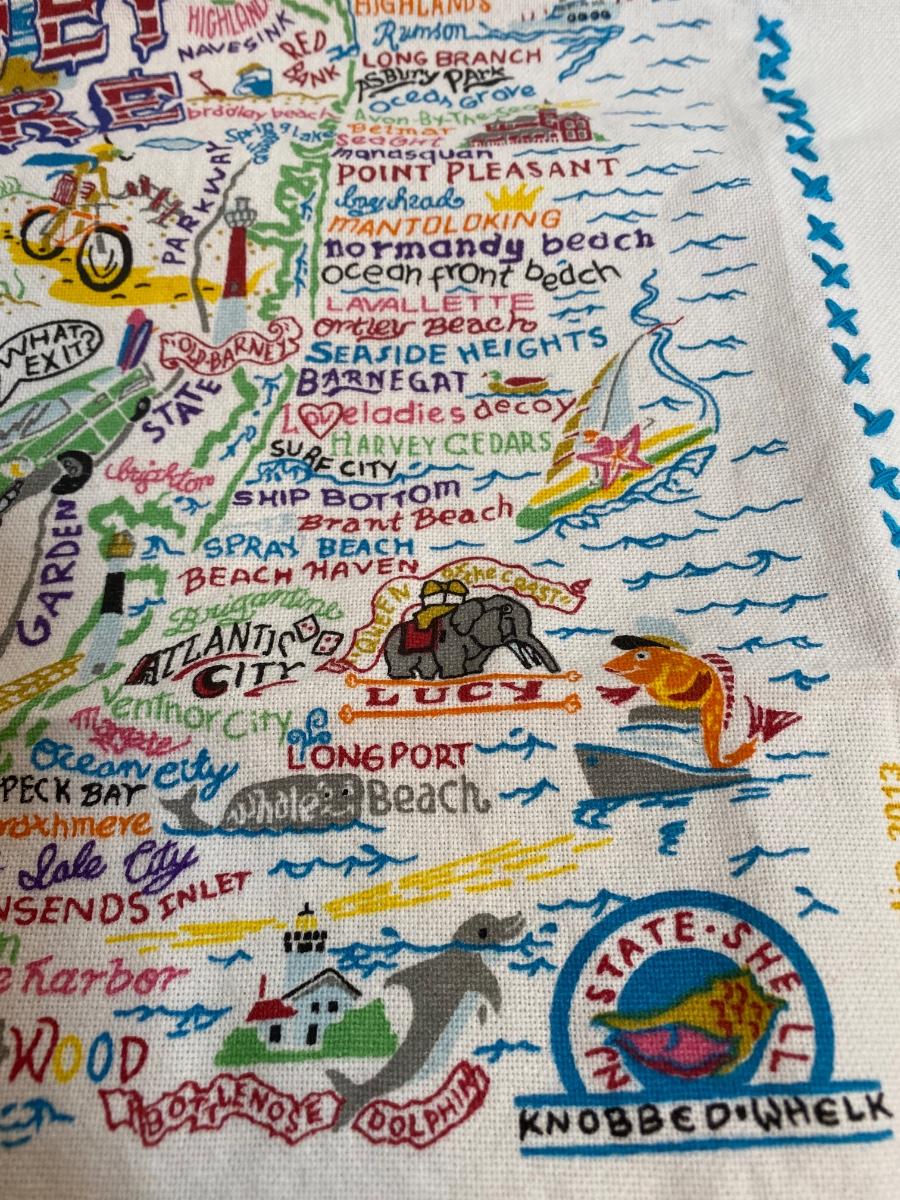 HIGHLANDS
HIGHLAND
NAVESINK
RED
BANK
Rumson
LONG BRANCH
ASBURY PARK
Ocean Grove
bradley beach
Avon-By-The-Sea
Belmar
Spring Lake
SeaGirt
manasquan
POINT PLEASANT
bayhead
MANTOLOKING
normandy beach
ocean front beach
LAVALLETTE
Ortley Beach
SEASIDE HEIGHTS
BARNEGAT
"OLD-BARNEY"
WHAT EXIT?
GARDEN STATE PARKWAY
LOVeladies
decoy
HARVEY CEDARS
SURF CITY
brighton
SHIP BOTTOM
Brant Beach
SPRAY BEACH
BEACH HAVEN
Brigantine
QUEEN of the coast
ATLANTIC CITY
LUCY
Ventnor City
Margate
LONGPORT
Ocean City
PECK BAY
Whale Beach
Isle City
NSENDS INLET
Harbor
WOOD
BOTTLENOSE DOLPHIN
NJ STATE·SHELL
KNOBBED·WHELK
2013